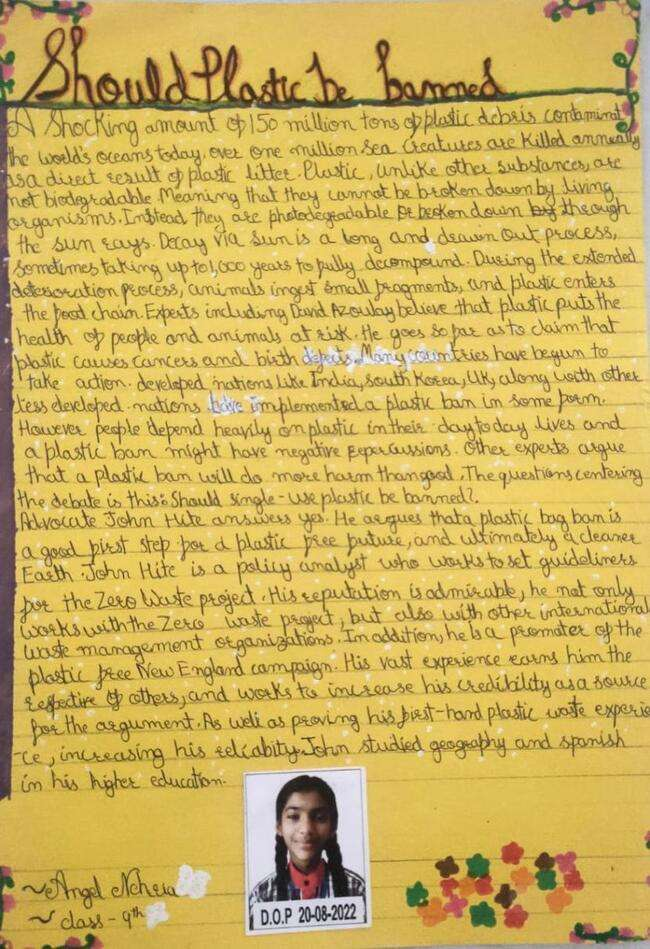 Should Plastic be banned
A Shocking amount of 150 million tons of plastic debris contaminat
the world's oceans today, over one million Sea Creatures are killed annually
as a direct result of plastic litter. Plastic, unlike other substances, are
not biodegradable. Meaning that they cannot be broken down by living
organisms. Instead they are photodegradable or broken down by through
the sun rays. Decay via sun is a long and drawn out process,
sometimes taking up to 1,000 years to fully decompound. During the extended
deterioration process, animals ingest small fragments, and plastic enters
the food chain. Experts including David Azoulay believe that plastic puts the
health of people and animals at risk. He goes so far as to claim that
plastic causes cancers and birth defects. Many countries have begun to
take action. developed nations like India, south Korea, UK, along with other
less developed nations have implemented a plastic ban in some form.
However people depend heavily on plastic in their day to day lives and
a plastic ban might have negative repercussions. Other experts argue
that a plastic ban will do more harm than good. The questions centering
the debate is this: Should single-use plastic be banned?.
Advocate John Hite answers yes. He argues that a plastic bag ban is
a good first step for a plastic free future, and ultimately a cleaner
Earth. John Hite is a policy analyst who works to set guideliners
for the Zero Waste project. His reputation is admirable, he not only
works with the Zero waste project, but also with other international
waste management organizations. In addition, he is a promoter of the
plastic free New England campaign. His vast experience earns him the
respective of others, and works to increase his credibility as a source
for the argument. As well as proving his first-hand plastic waste experie
-ce, increasing his reliabity. John studied geography and spanish
in his higher education.
~Angel
~ class - 9th
D.O.P 20-08-2022